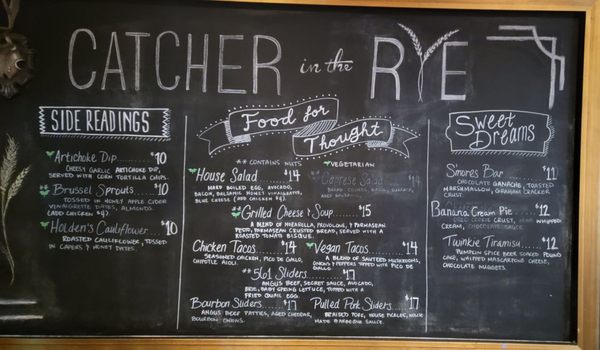 CATCHER in the RYE
SIDE READINGS
Artichoke Dip $10
CHEESY GARLIC ARTICHOKE DIP,
SERVED WITH CORN TORTILLA CHIPS.
**Brussel Sprouts $10
TOSSED IN HONEY APPLE CIDER
VINAIGRETTE DATES, ALMONDS.
(ADD CHICKEN $4)
Holden's Cauliflower $10
ROASTED CAULIFLOWER, TOSSED
IN CAPERS & HONEY DATES.
Food for
Thought
** CONTAINS NUTS
VEGETARIAN
House Salad $14
HARD BOILED EGG, AVOCADO,
BACON, BALSAMIC HONEY VINAIGRETTE,
BLUE CHEESE (ADD CHICKEN $4)
Caprese Salad $14
**Grilled Cheese & Soup $15
A BLEND OF MOZARELLA, PROVOLONE, & PARMESAN
PESTO, PARMESAN CRUSTED BREAD, SERVED WITH A
ROASTED TOMATO BISQUE.
Chicken Tacos $14
SEASONED CHICKEN, PICO DE GALLO,
CHIPOTLE AIOLI.
Vegan Tacos $14
A BLEND OF SAUTEED MUSHROOMS,
ONIONS & PEPPERS TOPPED WITH PICO DE
GALLO
**561 Sliders $17
ANGUS BEEF, SECRET SAUCE, AVOCADO,
BRIE, BABY SPRING LETTUCE, TOPPED WITH A
FRIED QUAIL EGG.
Bourbon Sliders $17
ANGUS BEEF PATTIES, AGED CHEDDAR,
BOURBON ONIONS.
Pulled Pork Sliders $17
BRAISED PORK, HOUSE PICKLES, HOUSE
MADE BARBEQUE SAUCE.
Sweet
DREAMS
S'mores Bar $11
CHOCOLATE GANACHE, TOASTED
MARSHMALLOW, GRAHAM CRACKER.
Banana Cream Pie $12
CRUST, WHIPPED
CREAM, CHOCOLATE SAUCE.
Twinkie Tiramisu $12
PUMPKIN SPICE BEER SOAKED POUND
CAKE, WHIPPED MASCARPONE CHEESE,
CHOCOLATE NUGGETS.